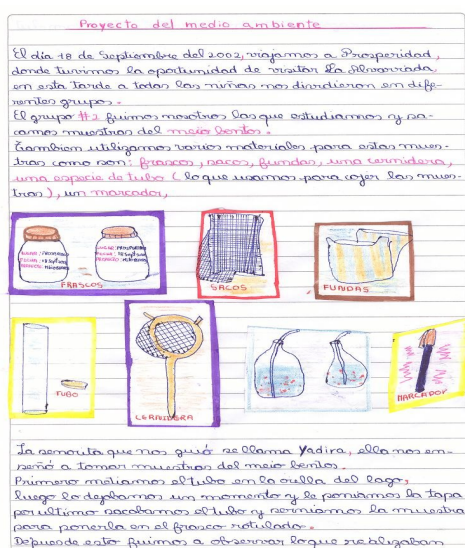 Proyecto del medio ambiente
El día 18 de Septiembre del 2002, viajamos a Prosperidad,
donde tuvimos la oportunidad de visitar La Alvarrada,
en esta tarde a todas las niñas nos dividieron en dife-
rentes grupos.
El grupo #2 fuimos nosotros las que estudiamos y sa-
camos muestras del meio bentos.
Tambien utilizamos varios materiales para estas mues-
tras como son: frascos, sacos, fundas, una cernidera,
una especie de tubo (lo que usamos para cojer las mues-
tras), un marcador,
FRASCOS
SACOS
FUNDAS
TUBO
CERNIDERA
MARCADOR
La señorita que nos guió se llama Yadira, ella nos en-
señó a tomar muestras del meio bentos.
Primero metiamos el tubo en la orilla del lago,
luego lo dejabamos un momento y le poniamos la tapa
por ultimo sacabamos el tubo y cerniamos la muestra
para ponerla en el frasco rotulado.
Depues de esto fuimos a observar lo que realizaban